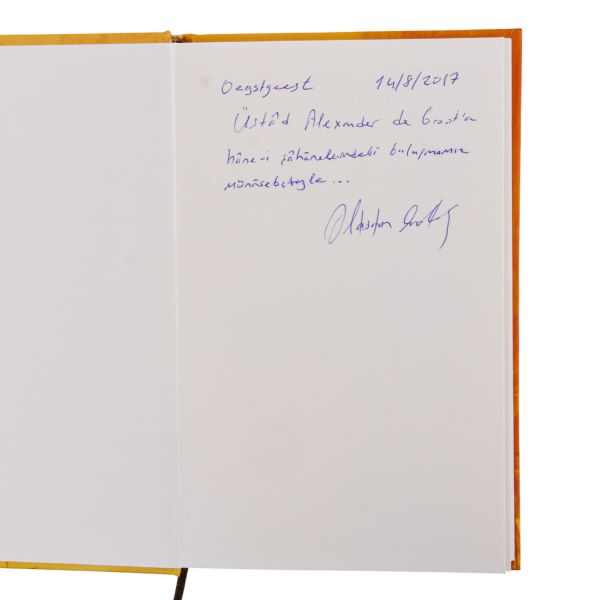 Oegstgeest 14/8/2017
Üstâd Alexander de Groot'a
hâne-i şâhânelerindeki buluşmamız
münâsebetiyle...